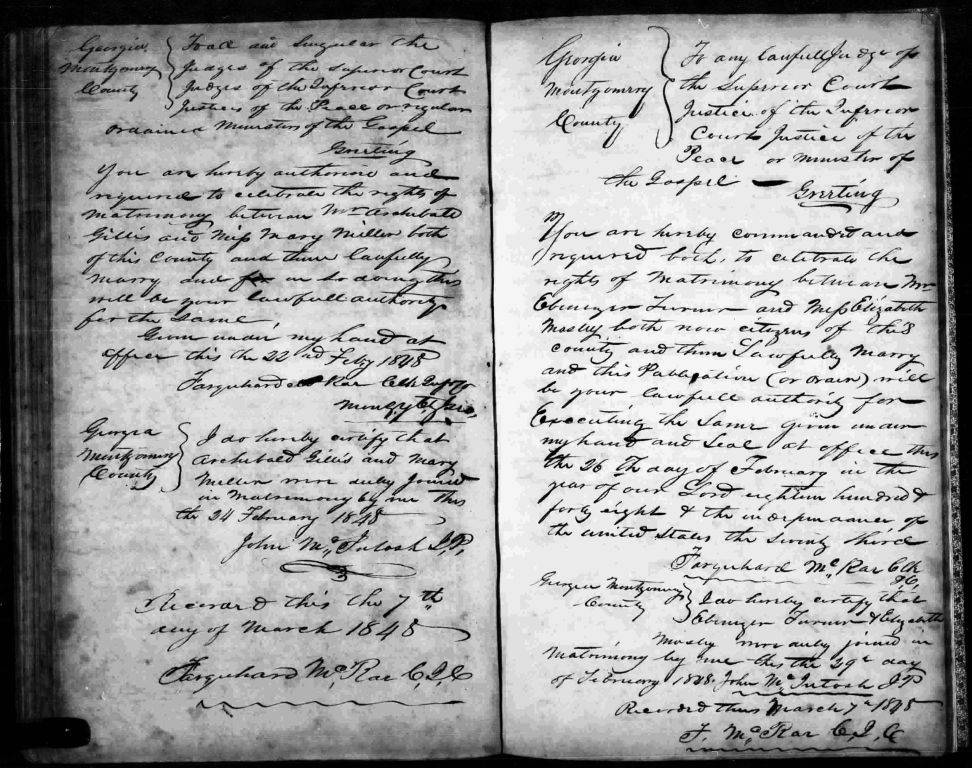 Georgia
Montgomery
County
To all and Singular the
Judges of the Superior Court
Judges of the Inferior Court
Justices of the Peace or regular
ordained Ministers of the Gospel
Greeting
You are hereby authorised and
required to celebrate the rights of
Matrimony between Mr Archebald
Gillis and Miss Mary Miller both
of this County and them lawfully
marry and for so doing this
will be your lawfull authority
for the Same
Given under my hand at
office this the 22nd Feby 1848
Farquhard McRae Clk
Georgia
Montgomery
County
I do hereby certify that
Archibald Gillis and Mary
Miller were duly Joined
in Matrimony by me this
the 24 February 1848
John McIntosh J.P.
Record this the 7th
day of March 1848
Farquhard McRae C,I,C
Georgia
Montgomery
County
To any lawfull Judge of
the Superior Court
Justice of the Inferior
Court Justice of the
Peace or Minister of
the Gospel — Greeting
You are hereby commanded and
required both, to celebrate the
rights of Matrimony between Mr
Ebenezer Turner and Miss Elizabeth
Mosley both now citizens of this
county and them Lawfully Marry
and this Publication (or ) will
be your lawfull authority for
Executing the Same given under
my hand and Seal at office this
the 26 Th day of February in the
year of our Lord eighteen hundred &
forty eight & the independance of
the united States the Seventy third
Farquhard McRae Clk
Georgia Montgomery
County
I do hereby certify that
Ebenezer Turner & Elizabeth
Mosley were duly joined in
Matrimony by me this the 29th day
of February 1848 John McIntosh J P
Recorded this March 7th 1848
F. McRae C,I,C